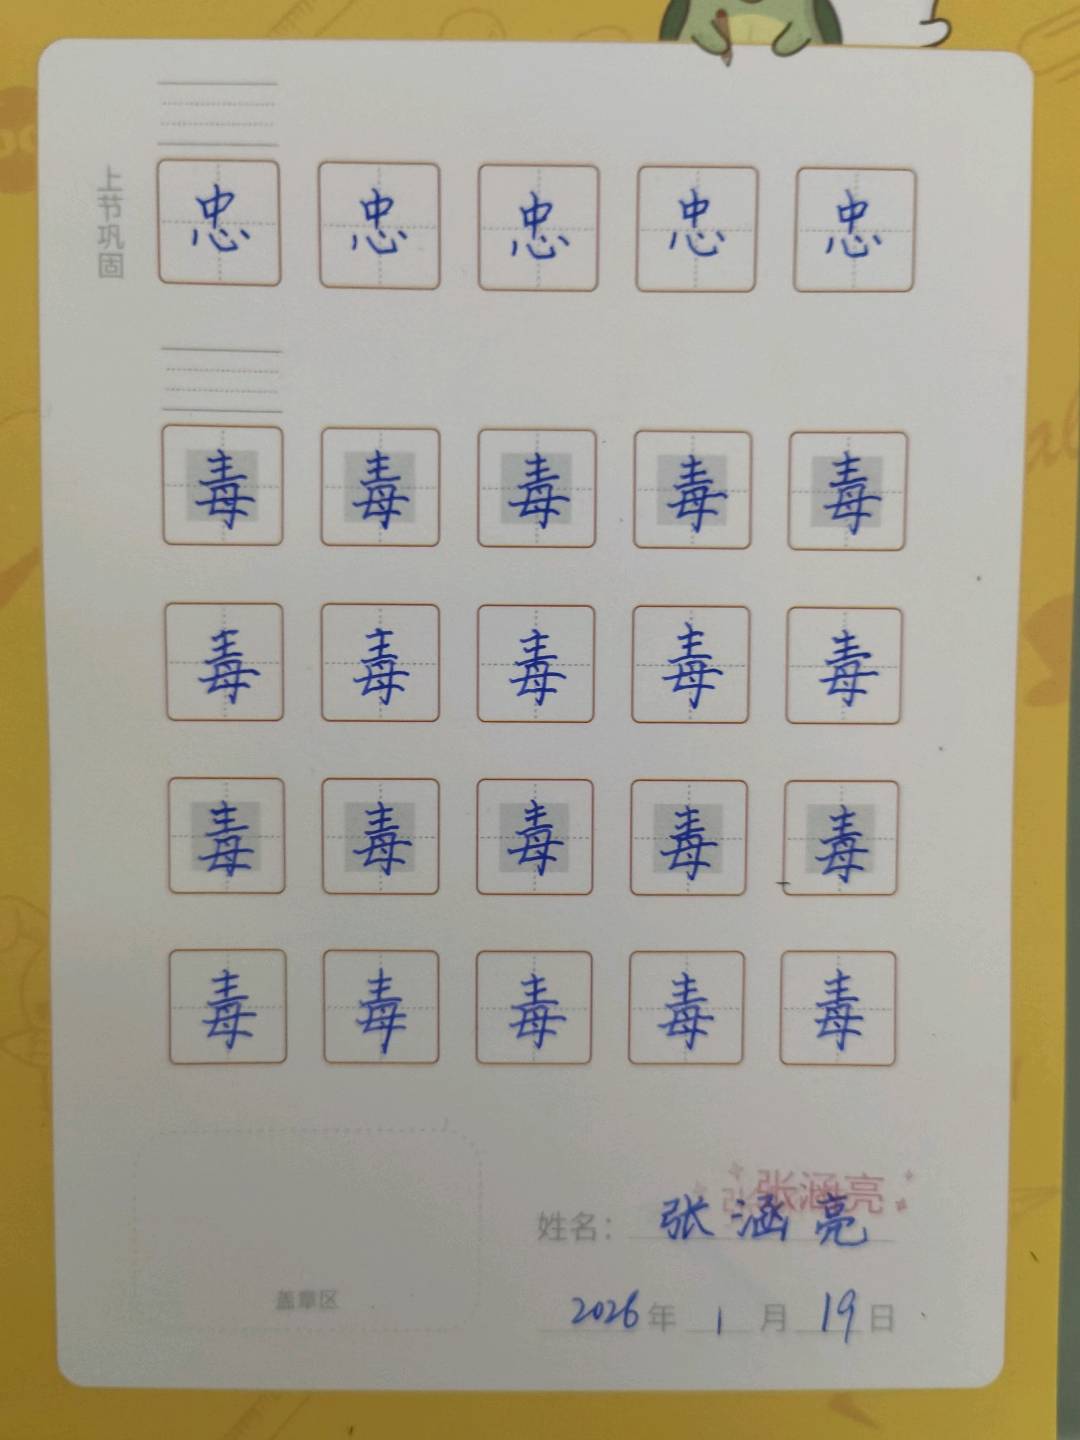 上节巩固
忠 忠 忠 忠 忠
毒 毒 毒 毒 毒
毒 毒 毒 毒 毒
毒 毒 毒 毒 毒
毒 毒 毒 毒 毒
张涵亮
姓名: 张涵亮
盖章区
2026年 1 月 19 日